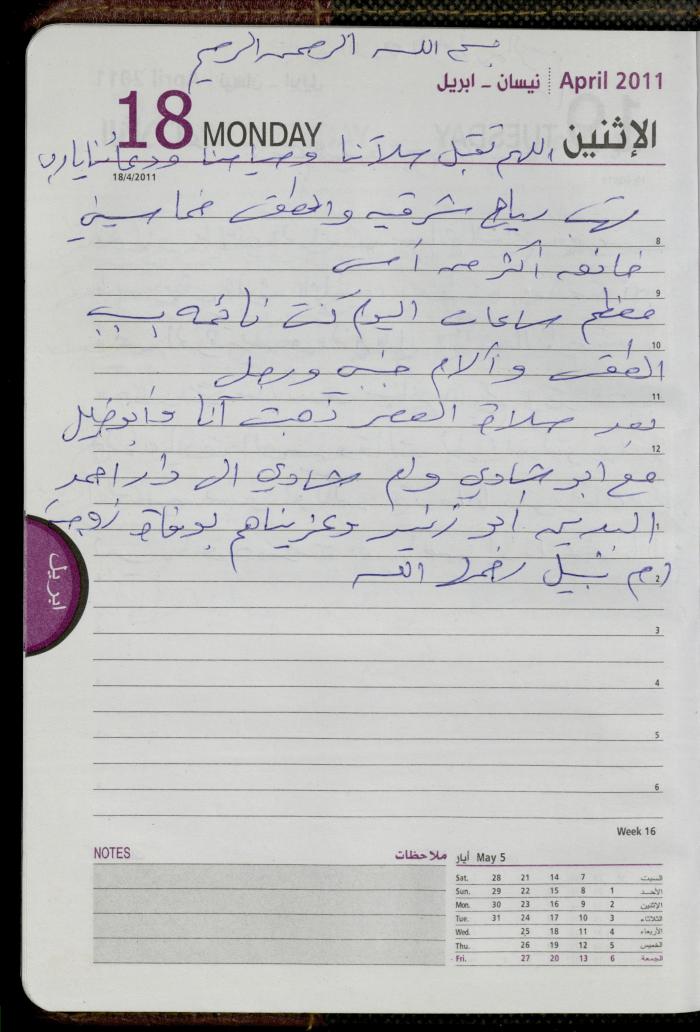 بسم الله الرحمن الرحيم
نيسان - ابريل April 2011
18 MONDAY الإثنين
18/4/2011
اللهم تقبل صلاتنا وصيامنا ودعائنا يارب
تهب رياح شرقيه والطقس خماسيني
خانقه أكثر من أمس
معظم ساعات اليوم كنت نائمه بسبب
الطقس وآلام جنبي ورجلي
بعد صلاة العصر ذهبت أنا وأبو
مع ابو شادي وام شادي الى دار احمد
أبو وعزيناهم بوفاة زوجته
ام نبيل رحمها الله
8
9
10
11
12
1
2
3
4
5
6
ابريل
Week 16
NOTES ملاحظات
أيار May 5
Sat. 28 21 14 7 السبت
Sun. 29 22 15 8 1 الأحد
Mon. 30 23 16 9 2 الإثنين
Tue. 31 24 17 10 3 الثلاثاء
Wed. 25 18 11 4 الأربعاء
Thu. 26 19 12 5 الخميس
Fri. 27 20 13 6 الجمعة